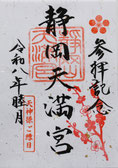 参拝記念
静岡天満宮
令和八年睦月
天神様ご縁日